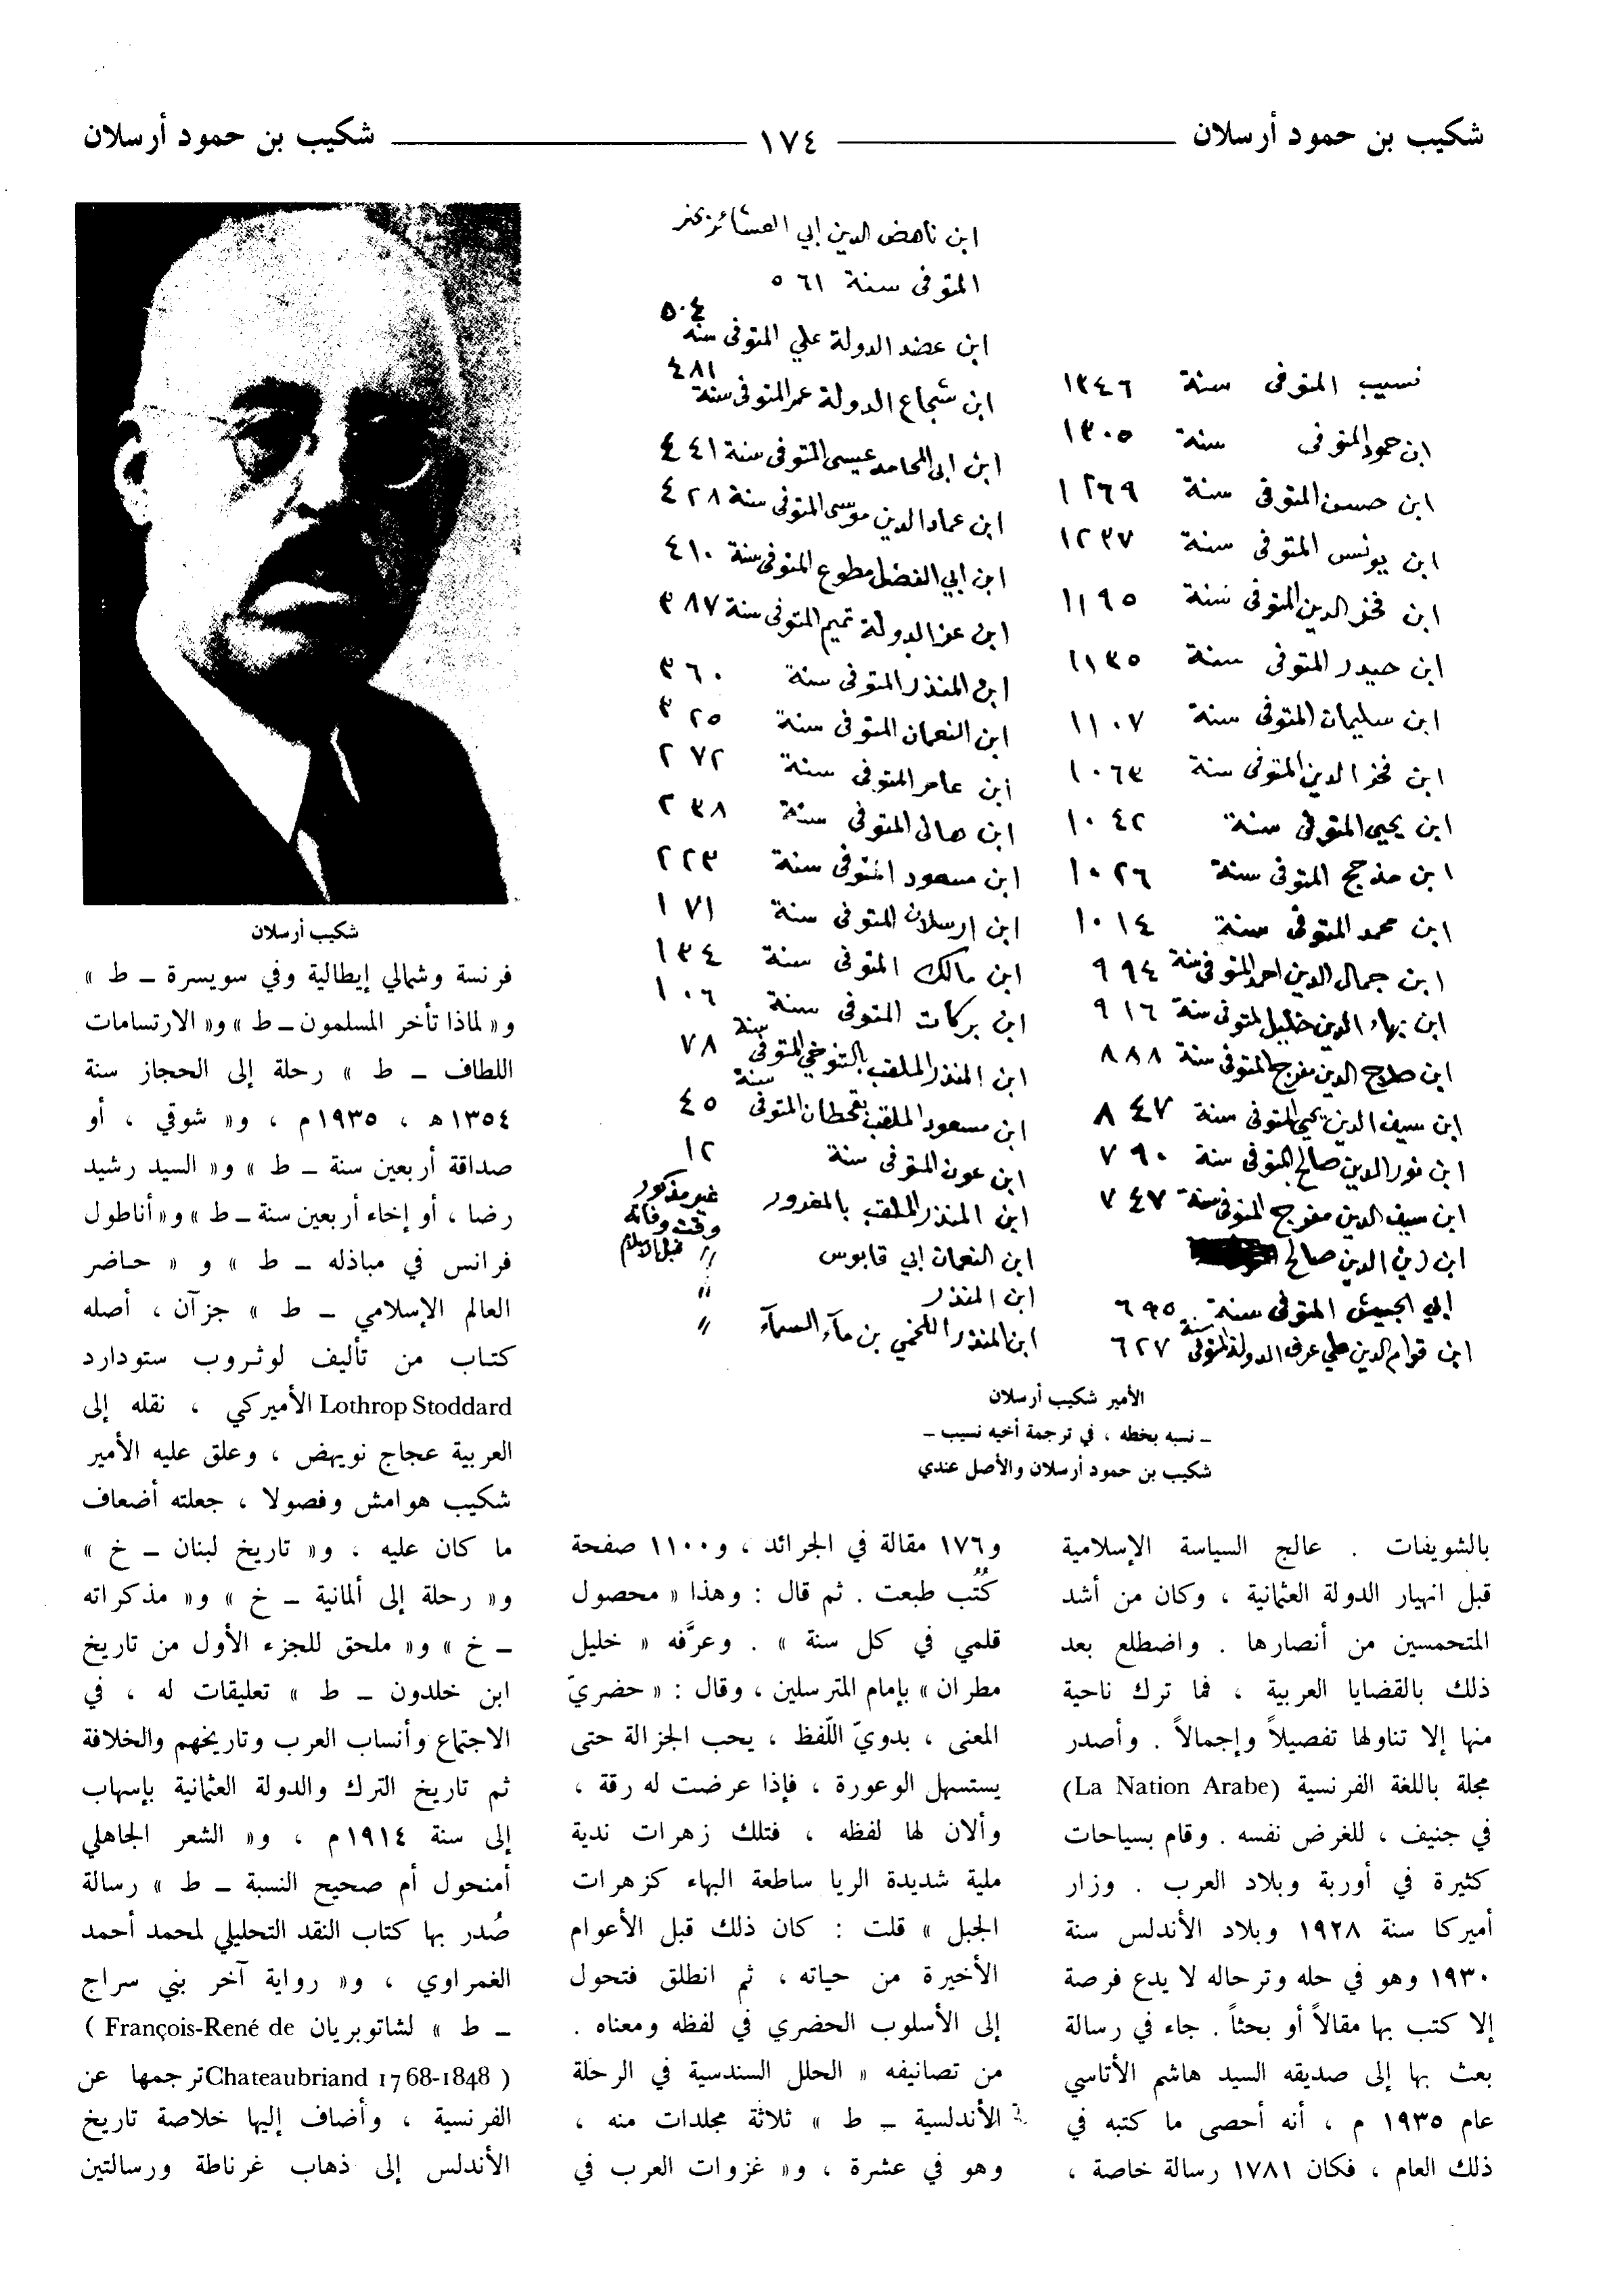 شكيب بن حمود أرسلان ١٧٤ شكيب بن حمود أرسلان
نسيب المتوفى سنة ١٣٤٦
ابن حمود المتوفى سنة ١٣٠٥
ابن حسن المتوفى سنة ١٢٦٩
ابن يونس المتوفى سنة ١٢٣٧
ابن فخر الدين المتوفى سنة ١١٩٥
ابن حيدر المتوفى سنة ١١٣٥
ابن سليمان المتوفى سنة ١١٠٧
ابن فخر الدين المتوفى سنة ١٠٦٣
ابن يحيى المتوفى سنة ١٠٤٢
ابن مذحج المتوفى سنة ١٠٢٦
ابن محمد المتوفى سنة ١٠١٤
ابن جمال الدين احمد المتوفى سنة ٩٩٤
ابن بهاء الدين خليل المتوفى سنة ٩١٦
ابن صلاح الدين مفرج المتوفى سنة ٨٨٨
ابن سيف الدين يحيى المتوفى سنة ٨٤٧
ابن نور الدين صالح المتوفى سنة ٧٩٠
ابن سيف الدين مفرج المتوفى سنة ٧٤٧
ابن زين الدين صالح
ابي الجيش المتوفى سنة ٦٩٥
ابن قوام الدين علي عرف الدولة المتوفى سنة ٦٢٧
ابن ناهض الدين ابي العشائر بحتر
المتوفى سنة ٥٦١
ابن عضد الدولة علي المتوفى سنة ٥٠٤
ابن شجاع الدولة عمر المتوفى سنة ٤٨١
ابن ابي المحامد عيسى المتوفى سنة ٤٤١
ابن عماد الدين موسى المتوفى سنة ٤٢٨
ابن ابي الفضل مطوع المتوفى سنة ٤١٠
ابن عز الدولة تميم المتوفى سنة ٣٨٧
ابن المنذر المتوفى سنة ٣٦٠
ابن النعمان المتوفى سنة ٣٢٥
ابن عامر المتوفى سنة ٢٧٢
ابن هانى المتوفى سنة ٢٣٨
ابن مسعود المتوفى سنة ٢٢٣
ابن ارسلان المتوفى سنة ١٧١
ابن مالك المتوفى سنة ١٣٤
ابن بركات المتوفى سنة ١٠٦
ابن المنذر الملقب بالتنوخي المتوفى سنة ٧٨
ابن مسعود الملقب بقحطان المتوفى سنة ٤٥
ابن عون المتوفى سنة ١٢
ابن المنذر الملقب بالمغرور غير مذكور وقت وفاته
ابن النعمان ابي قابوس " قبل الاسلام
ابن المنذر "
ابن المنذر اللخمي بن مآء السمآء "
الأمير شكيب أرسلان
ـ نسبه بخطه ، في ترجمة أخيه نسيب ـ
شكيب بن حمود أرسلان والأصل عندي
بالشويفات . عالج السياسة الإسلامية
قبل انهيار الدولة العثمانية ، وكان من أشد
المتحمسين من أنصارها . واضطلع بعد
ذلك بالقضايا العربية ، فما ترك ناحية
منها إلا تناولها تفصيلاً وإجمالاً . وأصدر
مجلة باللغة الفرنسية (La Nation Arabe)
في جنيف ، للغرض نفسه . وقام بسياحات
كثيرة في أوربة وبلاد العرب . وزار
أميركا سنة ١٩٢٨ وبلاد الأندلس سنة
١٩٣٠ وهو في حله وترحاله لا يدع فرصة
إلا كتب بها مقالاً أو بحثاً . جاء في رسالة
بعث بها إلى صديقه السيد هاشم الأتاسي
عام ١٩٣٥ م ، أنه أحصى ما كتبه في
ذلك العام ، فكان ١٧٨١ رسالة خاصة ،
و١٧٦ مقالة في الجرائد ، و١١٠٠ صفحة
كُتُب طبعت . ثم قال : وهذا « محصول
قلمي في كل سنة » . وعرَّفه « خليل
مطران » بإمام المترسلين ، وقال : « حضريّ
المعنى ، بدويّ اللّفظ ، يحب الجزالة حتى
يستسهل الوعورة ، فإذا عرضت له رقة ،
وألان لها لفظه ، فتلك زهرات ندية
ملية شديدة الريا ساطعة البهاء كزهرات
الجبل » قلت : كان ذلك قبل الأعوام
الأخيرة من حياته ، ثم انطلق فتحول
إلى الأسلوب الحضري في لفظه ومعناه .
من تصانيفه « الحلل السندسية في الرحلة
الأندلسية ـ ط » ثلاثة مجلدات منه ،
وهو في عشرة ، و« غزوات العرب في
شكيب أرسلان
فرنسة وشمالي إيطالية وفي سويسرة ـ ط »
و« لماذا تأخر المسلمون ـ ط » و« الارتسامات
اللطاف ـ ط » رحلة إلى الحجاز سنة
١٣٥٤ ه ، ١٩٣٥ م ، و« شوقي ، أو
صداقة أربعين سنة ـ ط » و« السيد رشيد
رضا ، أو إخاء أربعين سنة ـ ط » و« أناطول
فرانس في مباذله ـ ط » و « حاضر
العالم الإسلامي ـ ط » جزآن ، أصله
كتاب من تأليف لوثروب ستودارد
Lothrop Stoddard الأميركي ، نقله إلى
العربية عجاج نويهض ، وعلق عليه الأمير
شكيب هوامش وفصولا ، جعلته أضعاف
ما كان عليه ، و« تاريخ لبنان ـ خ »
و« رحلة إلى ألمانية ـ خ » و« مذكراته
ـ خ » و« ملحق للجزء الأول من تاريخ
ابن خلدون ـ ط » تعليقات له ، في
الاجتماع وأنساب العرب وتاريخهم والخلافة
ثم تاريخ الترك والدولة العثمانية بإسهاب
إلى سنة ١٩١٤ م ، و« الشعر الجاهلي
أمنحول أم صحيح النسبة ـ ط » رسالة
صُدر بها كتاب النقد التحليلي لمحمد أحمد
الغمراوي ، و« رواية آخر بني سراج
ـ ط » لشاتوبريان François-René de )
( Chateaubriand 1768-1848 ترجمها عن
الفرنسية ، وأضاف إليها خلاصة تاريخ
الأندلس إلى ذهاب غرناطة ورسالتين